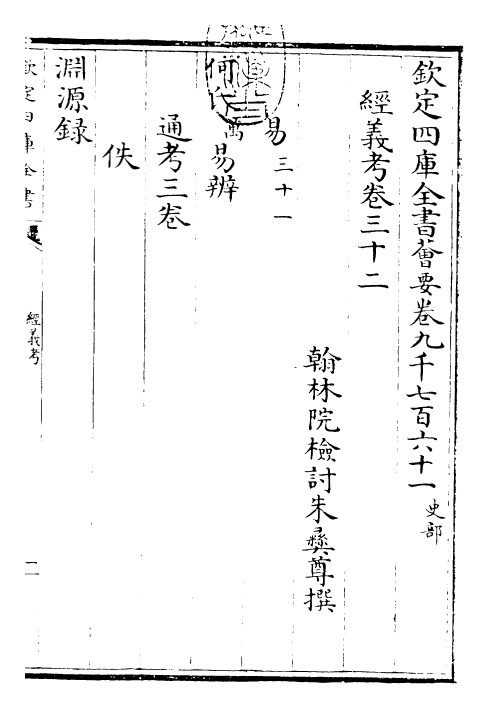 欽定四庫全書薈要卷九千七百六十一 史部
經義考卷三十二
翰林院檢討朱彝尊撰
易 三十一
何氏 萬 易辨
通考三卷
佚
淵源録
欽定四庫全書
經義考
一